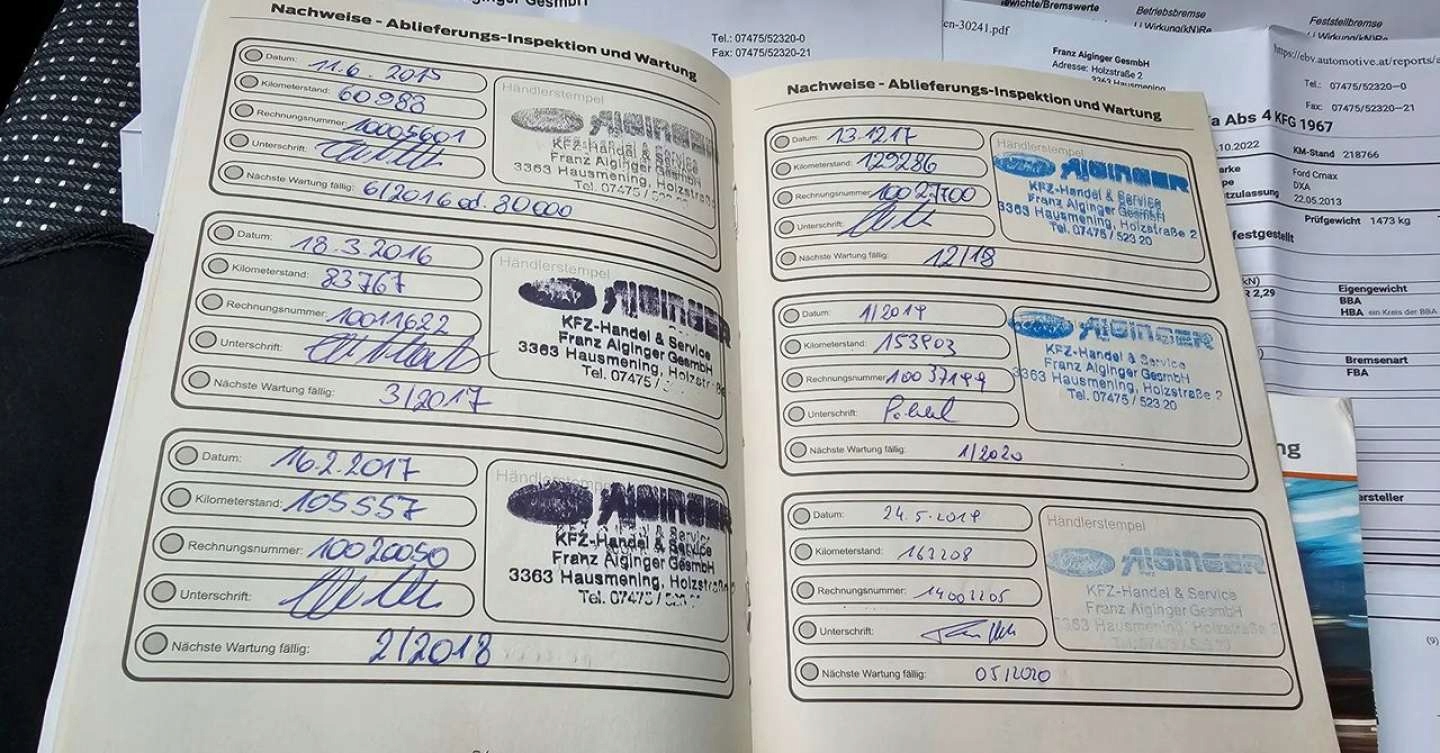 Nachweise - Ablieferungs-Inspektion und Wartung
Datum: 11.6.2015
Kilometerstand: 60983
Rechnungsnummer: 10005601
Unterschrift:
Nächste Wartung fällig: 6/2016 od. 80000
Händlerstempel
Ford AIGINGER
KFZ-Handel & Service
Franz Aiginger GesmbH
3363 Hausmening, Holzstraße
Tel. 07475 / 523 20
Datum: 18.3.2016
Kilometerstand: 83767
Rechnungsnummer: 10011622
Unterschrift:
Nächste Wartung fällig: 3/2017
Händlerstempel
AIGINGER
KFZ-Handel & Service
Franz Aiginger GesmbH
3363 Hausmening, Holzstr
Tel. 07475 /
Datum: 16.2.2017
Kilometerstand: 105557
Rechnungsnummer: 10020050
Unterschrift:
Nächste Wartung fällig: 2/2018
Händlerstempel
AIGINGER
KFZ-Handel & Service
Franz Aiginger GesmbH
3363 Hausmening, Holzstraße 2
Tel. 07475 / 523 20
Nachweise - Ablieferungs-Inspektion und Wartung
Datum: 13.12.17
Kilometerstand: 129286
Rechnungsnummer: 10027700
Unterschrift:
Nächste Wartung fällig: 12/18
Händlerstempel
Ford AIGINGER
KFZ-Handel & Service
Franz Aiginger GesmbH
3363 Hausmening, Holzstraße 2
Tel. 07475 / 523 20
Datum: 1/2019
Kilometerstand: 153903
Rechnungsnummer: 10037199
Unterschrift:
Nächste Wartung fällig: 1/2020
AIGINGER
KFZ-Handel & Service
Franz Aiginger GesmbH
3363 Hausmening, Holzstraße 2
Tel. 07475 / 523 20
Datum: 24.5.2019
Kilometerstand: 162208
Rechnungsnummer: 14002205
Unterschrift:
Nächste Wartung fällig: 05/2020
Händlerstempel
Ford AIGINGER
KFZ-Handel & Service
Franz Aiginger GesmbH
3363 Hausmening, Holzstraße
Tel. 07475 / 523 20
Aiginger GesmbH
Tel.: 07475/52320-0
Fax: 07475/52320-21
en-30241.pdf
ewichte/Bremswerte
Betriebsbremse
Feststellbremse
Franz Aiginger GesmbH
Adresse: Holzstraße 2
3363 Hausmening
https://ebv.automotive.at/reports/a
Tel.: 07475/52320-0
Fax: 07475/52320-21
a Abs 4 KFG 1967
.10.2022
KM-Stand 218766
arke Ford Cmax
pe DXA
tzulassung 22.05.2013
Prüfgewicht 1473 kg
festgestellt
kN)
R 2,29
Eigengewicht
BBA
HBA ein Kreis der BBA
Bremsenart
FBA
ng
ersteller
(9)